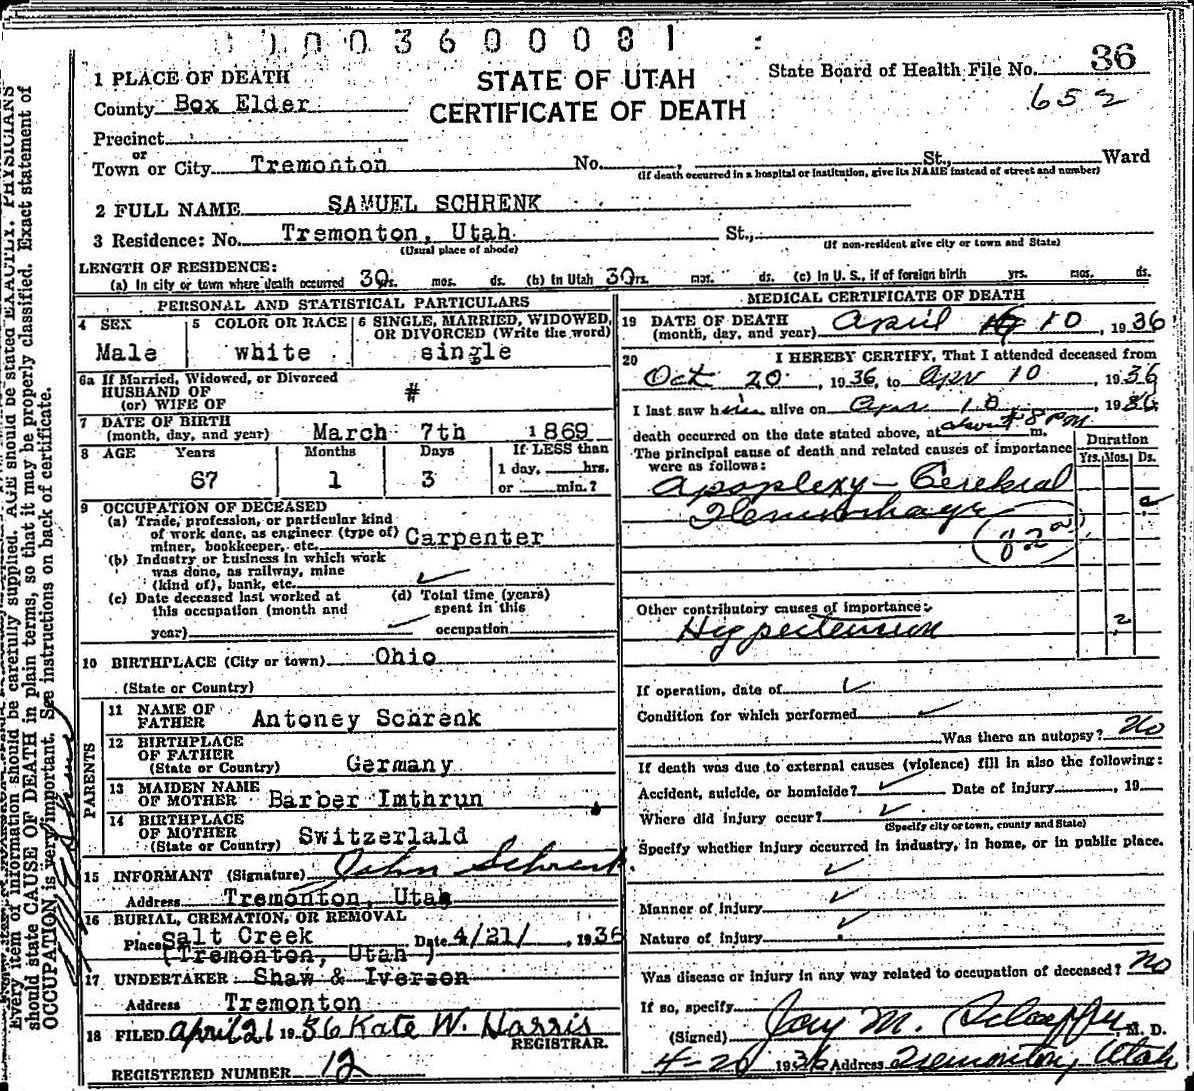 0003600081
1 PLACE OF DEATH
STATE OF UTAH
CERTIFICATE OF DEATH
State Board of Health File No. 36
652
County Box Elder
Precinct
or
Town or City Tremonton No. , St., Ward
(If death occurred in a hospital or institution, give its NAME instead of street and number)
2 FULL NAME SAMUEL SCHRENK
3 Residence: No. Tremonton, Utah St.,
(Usual place of abode) (If non-resident give city or town and State)
LENGTH OF RESIDENCE:
(a) In city or town where death occurred 30 yrs. mos. ds. (b) In Utah 30 yrs. mos. ds. (c) In U. S., if of foreign birth yrs. mos. ds.
PERSONAL AND STATISTICAL PARTICULARS
4 SEX
Male
5 COLOR OR RACE
white
6 SINGLE, MARRIED, WIDOWED,
OR DIVORCED (Write the word)
single
6a If Married, Widowed, or Divorced
HUSBAND OF
(or) WIFE OF #
7 DATE OF BIRTH
(month, day, and year) March 7th 1869
8 AGE Years Months Days If LESS than
67 1 3 1 day, hrs.
or min.?
9 OCCUPATION OF DECEASED
(a) Trade, profession, or particular kind
of work done, as engineer (type of)
miner, bookkeeper, etc. Carpenter
(b) Industry or business in which work
was done, as railway, mine
(kind of), bank, etc.
(c) Date deceased last worked at
this occupation (month and
year)
(d) Total time (years)
spent in this
occupation
10 BIRTHPLACE (City or town) Ohio
(State or Country)
PARENTS
11 NAME OF
FATHER Antoney Schrenk
12 BIRTHPLACE
OF FATHER
(State or Country) Germany
13 MAIDEN NAME
OF MOTHER Barber Imthrun
14 BIRTHPLACE
OF MOTHER
(State or Country) Switzerlald
15 INFORMANT (Signature) John Schrenk
Address Tremonton, Utah
16 BURIAL, CREMATION, OR REMOVAL
Place Salt Creek Date 4/21/ , 1936
(Tremonton, Utah )
17 UNDERTAKER Shaw & Iverson
Address Tremonton
18 FILED April 21 1936 Kate W. Harris
REGISTRAR.
REGISTERED NUMBER 12
MEDICAL CERTIFICATE OF DEATH
19 DATE OF DEATH
(month, day, and year) April 10 , 1936
20 I HEREBY CERTIFY, That I attended deceased from
Oct 20 , 1936, to Apr 10 , 1936
I last saw him alive on Apr 10 , 1936
death occurred on the date stated above, at about 8 PM m.
The principal cause of death and related causes of importance
were as follows:
Duration
Yrs. Mos. Ds.
Apoplexy - Cerebral
Hemorrhage
Other contributory causes of importance:
Hypertension 2
If operation, date of
Condition for which performed
Was there an autopsy? No
If death was due to external causes (violence) fill in also the following:
Accident, suicide, or homicide? Date of injury , 19
Where did injury occur?
(Specify city or town, county and State)
Specify whether injury occurred in industry, in home, or in public place.
Manner of injury
Nature of injury
Was disease or injury in any way related to occupation of deceased? No
If so, specify
(Signed) Jay M. Schaffer M. D.
4-20 1936 Address Tremonton, Utah
Every item of information should be carefully supplied. AGE should be stated EXACTLY. PHYSICIANS
should state CAUSE OF DEATH in plain terms, so that it may be properly classified. Exact statement of
OCCUPATION is very important. See instructions on back of certificate.